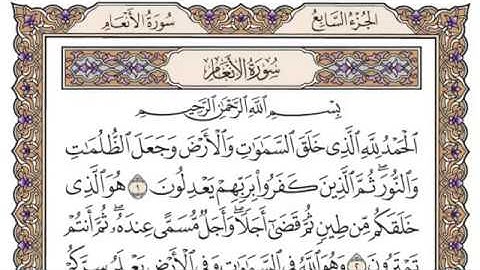 الجزء السابع
سورة الأنعام
سورة الأنعام
بسم الله الرحمن الرحيم
ٱلۡحَمۡدُ لِلَّهِ ٱلَّذِي خَلَقَ ٱلسَّمَٰوَٰتِ وَٱلۡأَرۡضَ وَجَعَلَ ٱلظُّلُمَٰتِ
وَٱلنُّورَۖ ثُمَّ ٱلَّذِينَ كَفَرُواْ بِرَبِّهِمۡ يَعۡدِلُونَ ١ هُوَ ٱلَّذِي
خَلَقَكُم مِّن طِينٖ ثُمَّ قَضَىٰٓ أَجَلٗاۖ وَأَجَلٞ مُّسَمًّى عِندَهُۥۖ ثُمَّ أَنتُمۡ
تَمۡتَرُونَ ٢ وَهُوَ ٱللَّهُ فِي ٱلسَّمَٰوَٰتِ وَفِي ٱلۡأَرۡضِ يَعۡلَمُ سِرَّكُمۡ